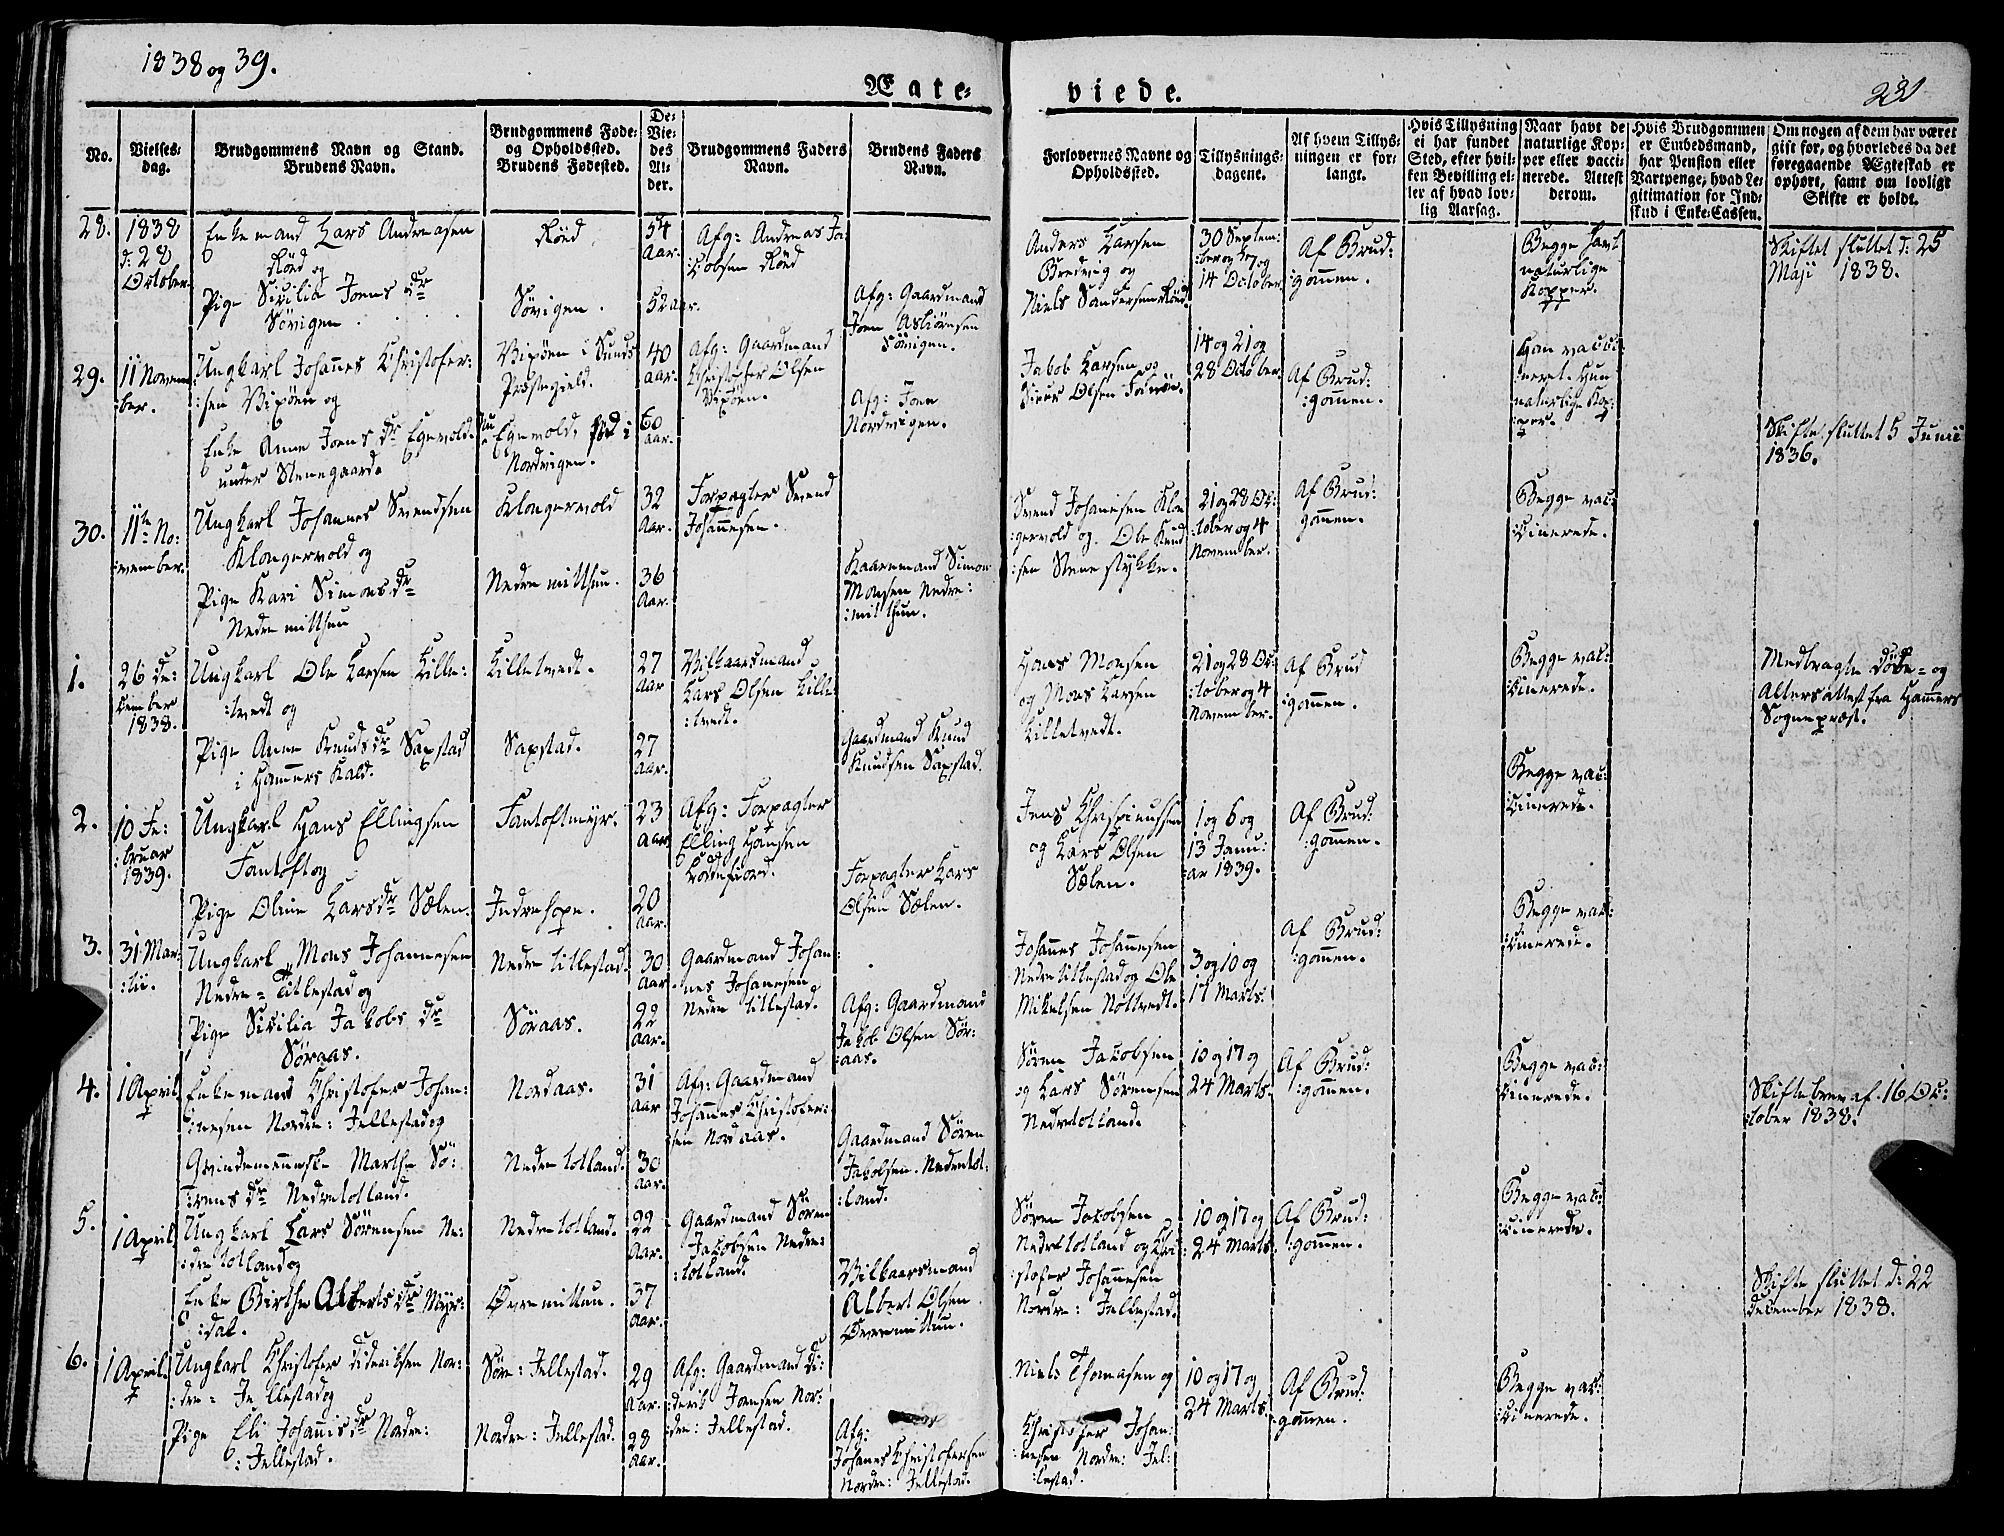 1838 og 39.
Ægte-
viede.
231
No.
Vielses-
dag.
Brudgommens Navn og Stand.
Brudens Navn.
Brudgommens Føde-
og Opholdssted.
Brudens Fødested.
De
Vie-
des
Al-
der.
Brudgommens Faders
Navn.
Brudens Faders
Navn.
Forlovernes Navne og
Opholdssted.
Tillysnings-
dagene.
Af hvem Tillys-
ningen er for-
langt.
Hvis Tillysning
ei har fundet
Sted, efter hvil-
ken Bevilling el-
ler af hvad lov-
lig Aarsag.
Naar havt de
naturlige Kop-
per eller vacci-
nerede. Attest
derom.
Hvis Brudgommen
er Embedsmand,
har Pension eller
Vartpenge, hvad Le-
gitimation for Ind-
skud i Enke-Cassen.
Om nogen af dem har været
gift for, og hvorledes da det
foregaaende Ægteskab er
ophørt, samt om lovligt
Skifte er holdt.
28.
1838
d: 28
October.
Enkemand Lars Andreasen
Röed og
Pige Sicilia Joens dr
Sövigen
Röed
Sövigen.
54
Aar.
52 aar.
Afg: Andreas Ja:
:kobsen Röed
Afg: Gaardmand
Joen Asbiörnsen
Sövigen.
Anders Larsen
Bredvig og
Niels Sandersen Röed
30 Septem:
:ber og 7 og
14 October
Af Brud:
:gommen.
Begge havt
naturlige
Kopper.
Skiftet sluttet d: 25
Maji 1838.
29.
11 Novem
:ber.
Ungkarl Johannes Christofer:
:sen Vipöen og
Enke Anne Joens dr Egevold
under Stenegaarde
Vipöen i Sunds
Præstegield.
Egevold, fød i
Nordvigen.
40
aar.
60
aar.
Afg: Gaardmand
Christofer Olsen
Vipöen.
Afg: Joen
Nordvigen.
Jakob Larsen og
Siver Olsen
14 og 21 og
28 October.
Af Brud:
:gommen.
Han vacci:
:neret. Hun
naturlige Kop:
:per.
Skifte sluttet 5 Junii
1836.
30.
11te No:
:vember.
Ungkarl Johannes Svendsen
Klongervold og
Pige Kari Simons dr
Nedre mitthun
Klongervold
Nedre mitthun.
32
Aar.
36
Aar.
Forpagter Svend
Johannesen.
Kaarmand Simon
Monsen Nedre:
:mitthun.
Svend Johannesen Klon
:gervold og Ole Knud
:sen Stene stykke.
21 og 28 Oc:
:tober og 4
November.
Af Brud:
gommen.
Begge vac:
:cinerede.
1.
26 De:
cember
1838.
Ungkarl Ole Larsen Lille:
:tvedt og
Pige Anne Knuds dr Saxstad
i Hammers Kald.
Lilletvedt.
Saxstad.
27
Aar
27
Aar.
Vilkaarsmand
Lars Olsen Lille
:tvedt.
Gaardmand Knud
Knudsen Saxstad.
Hans Monsen
og Mons Larsen
Lilletvedt.
21 og 28 Oc:
:tober og 4
November.
Af Brud
:gommen.
Begge vac:
:cinerede.
Medbragte Döbe- og
Altersattest fra Hammers
Sognepræst.
2.
10 Fe:
:bruar
1839.
Ungkarl Hans Ellingsen
Fantoft og
Pige Oline Lars dr Sælen.
Fantoftmyr.
Indrehope.
23
aar
20
aar.
Afg: Forpagter
Elling Hansen
Loddefiord.
Forpagter Lars
Olsen Sælen.
Jens Chrispinussen
og Lars Olsen
Sælen.
1 og 6 og
13 Janu:
ar 1839.
Af Brud:
:gommen.
Begge vac:
cinerede.
3.
31 Mar:
:tii.
Ungkarl Mons Johannesen
Nedre = Titlestad og
Pige Sicilia Jakobs dr
Söraas.
Nedre titlestad.
Söraas.
30
Aar.
22
Aar.
Gaardmand Johan:
:nes Johannesen
Nedre titlestad.
Afg: Gaardmand
Jakob Olsen Sör:
:aas.
Johannes Johannesen
Nedre titlestad og Ole
Mikelsen Nottvedt.
3 og 10 og
17 Marts.
Af Brud:
:gommen.
Begge vac:
:cinerede.
4.
1 April
Enkemand Christofer Johan:
:nesen Nordre: Jellestad og
Qvindemenneske Marthe Sö:
:rens dr Nedretotland.
Nordaas.
Nedre totland.
31
aar
30
aar.
Afg: Gaardmand
Johannes Christofer:
sen Nordaas.
Gaardmand Sören
Jakobsen. Nedretot:
:land.
Sören Jakobsen
og Lars Sörensen
Nedretotland.
10 og 17 og
24 Marts.
Af Brud:
:gommen.
Begge vac:
:cinerede.
Skiftebrev af 16 Oc:
:tober 1838.
5.
1 April
Ungkarl Lars Sörensen Ne:
:dretotland og
Enke Birthe Alberts dr Myr:
:dal.
Nedretotland.
Övremittun.
22
Aar.
37
Aar.
Gaardmand Sören
Jakobsen Nedre:
:totland.
Vilkaarsmand
Albert Olsen
Övremittun.
Sören Jakobsen
Nedretotland og Chri:
stofer Johannesen
Nordre: Jellestad.
10 og 17 og
24 Marts.
Af Brud:
:gommen.
Begge vac:
:cinerede.
Skifte sluttet d: 22
December 1838.
6.
1 April.
Ungkarl Christofer Dideriksen Nor:
:dre = Jellestad og
Pige Eli Johannis dr Nordre:
:Jellestad.
Söre: Jellestad.
Nordre: Jellestad.
29
Aar.
28
Aar.
Afg: Gaardmand Di:
:derik Joensen Nor:
:dre: Jellestad.
Afg:
Johannes Christofersen
Nordre: Jellestad.
Niels Thomasen og
Christofer Johan:
:nesen Nordre: Jel:
:lestad.
10 og 17 og
24 Marts.
Af Brud:
gommen.
Begge vac:
:cinerede.